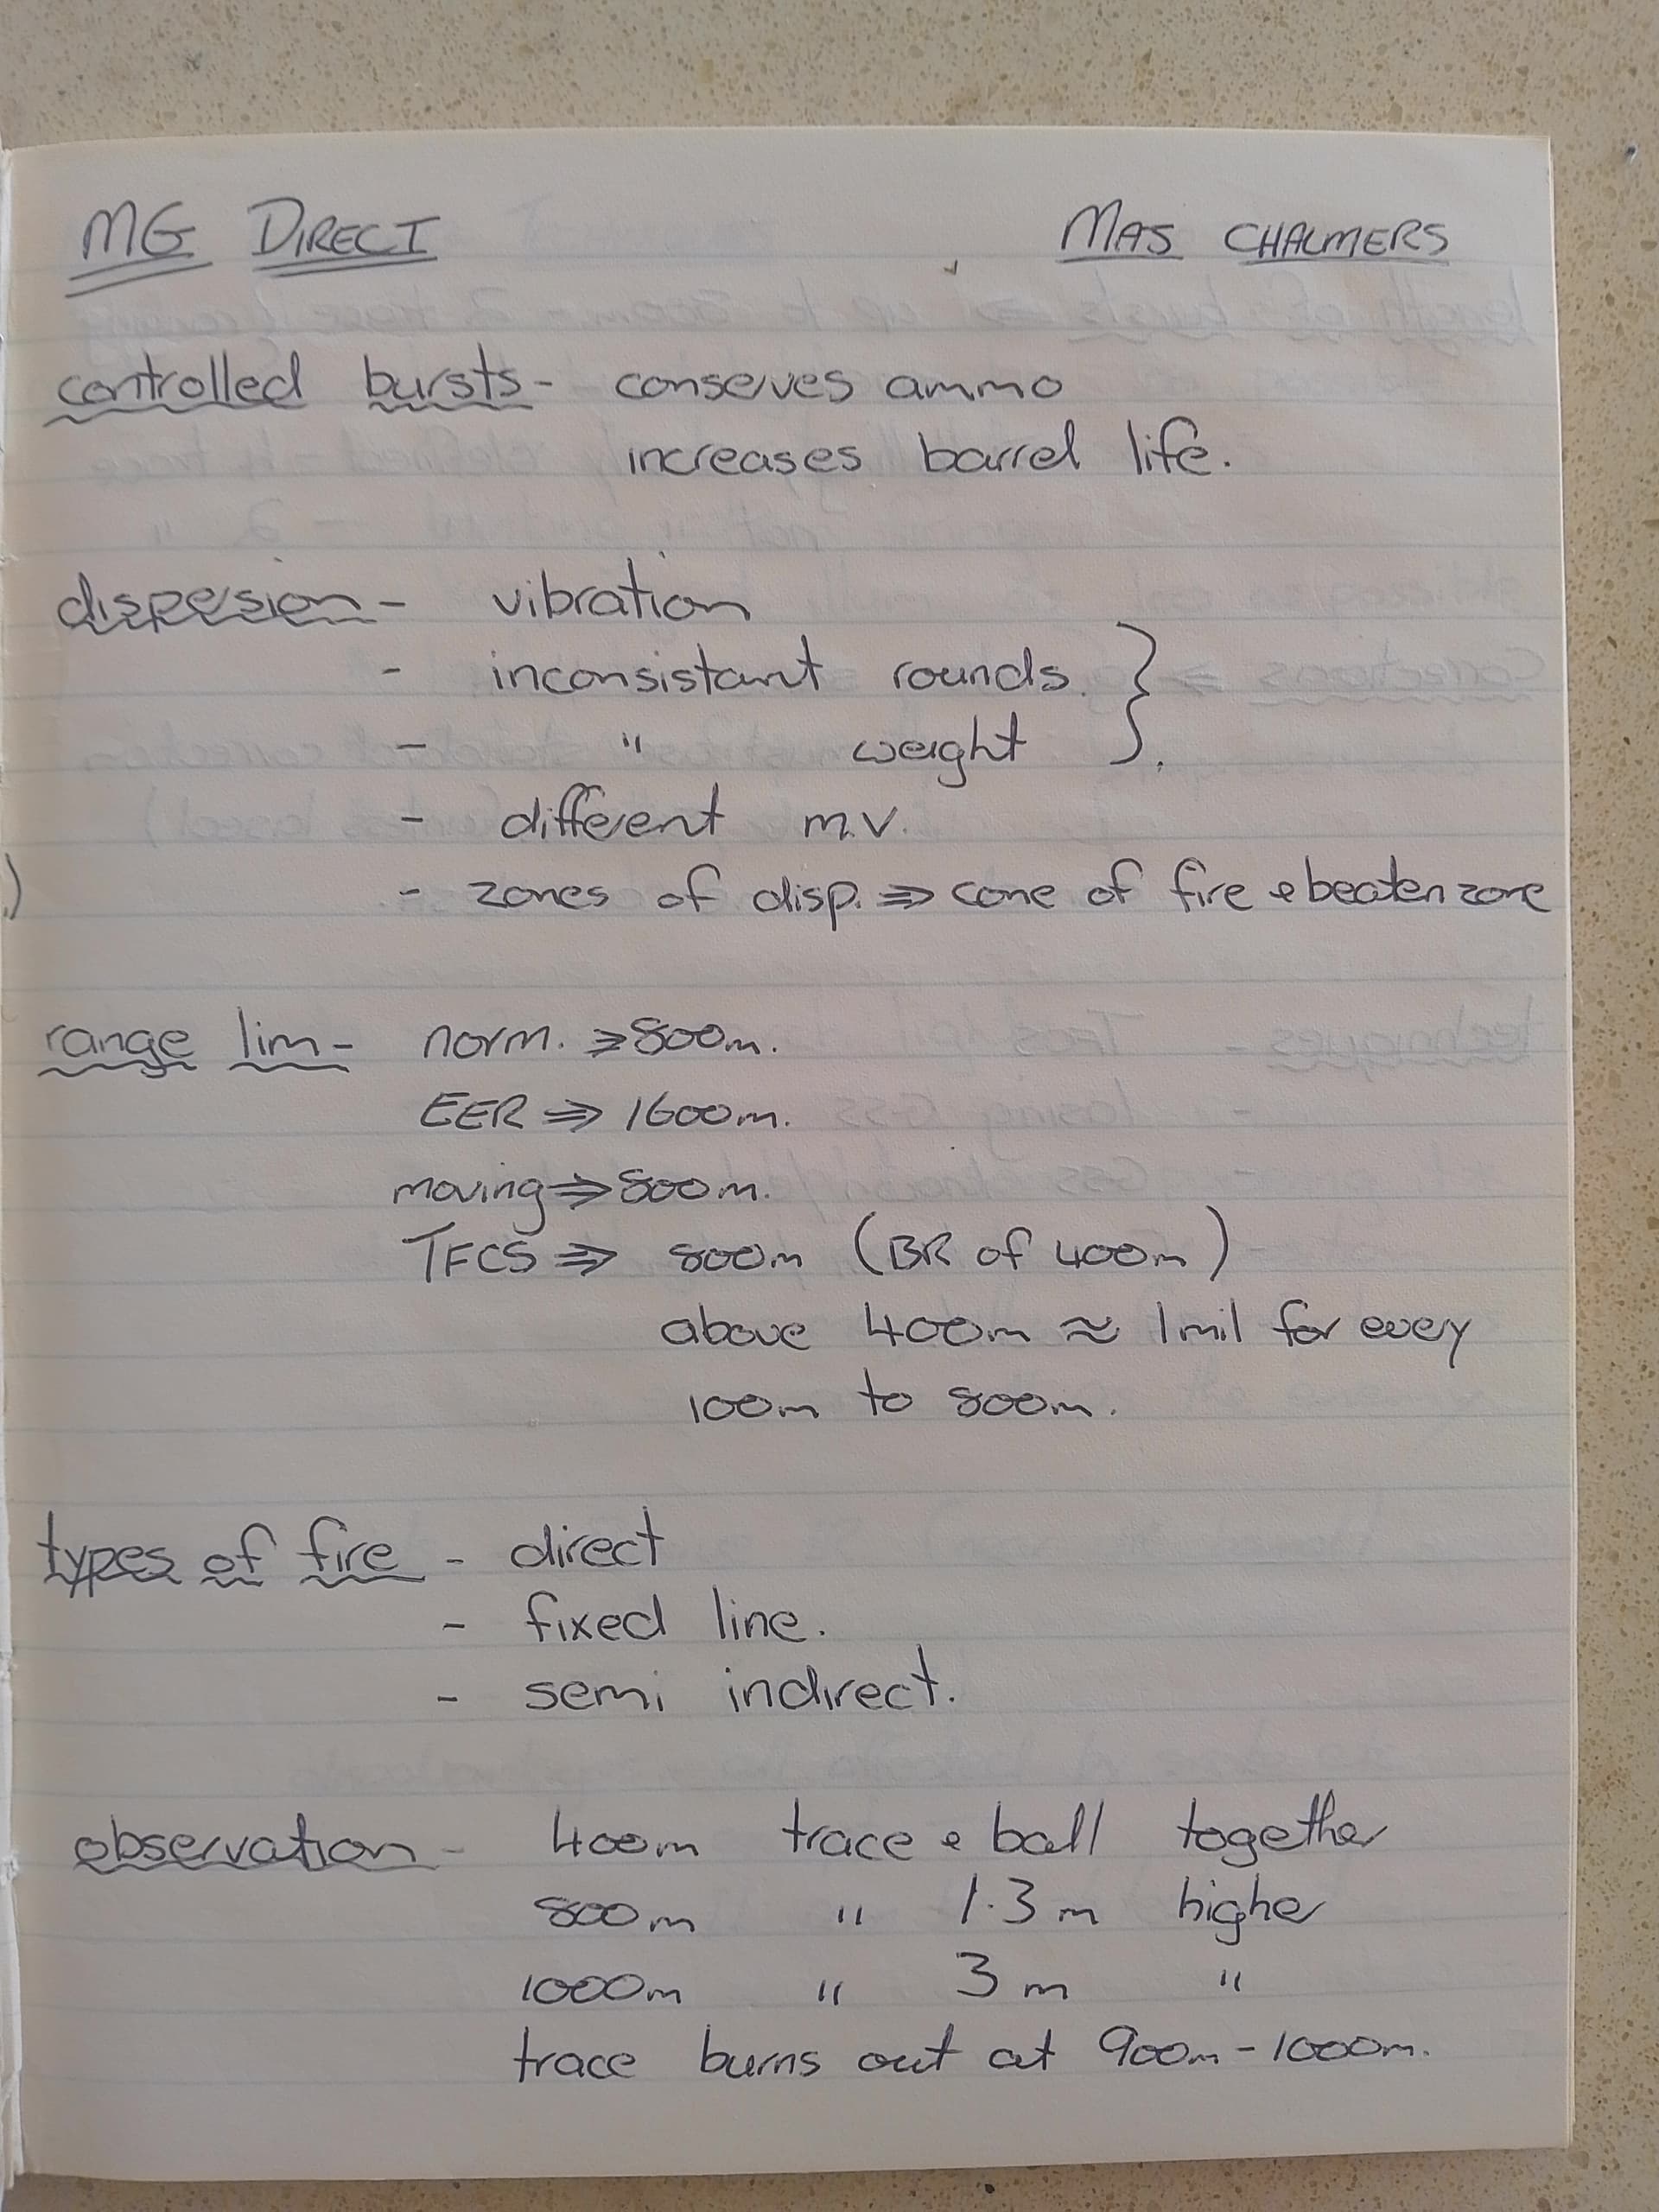 MG DIRECT MAS CHALMERS
controlled bursts - conserves ammo
increases barrel life.
dispesion - vibration
- inconsistant rounds. }
- " weight
- different m.v.
- zones of disp. ⇒ cone of fire & beaten zone
range lim - norm. ⇒ 800m.
EER ⇒ 1600m.
moving ⇒ 800m.
TFCS ⇒ 800m (BR of 400m)
above 400m ≈ 1mil for every
100m to 800m.
types of fire - direct
- fixed line.
- semi indirect.
observation - 400m trace & ball together
800m " 1.3m higher
1000m " 3m "
trace burns out at 900m - 1000m.